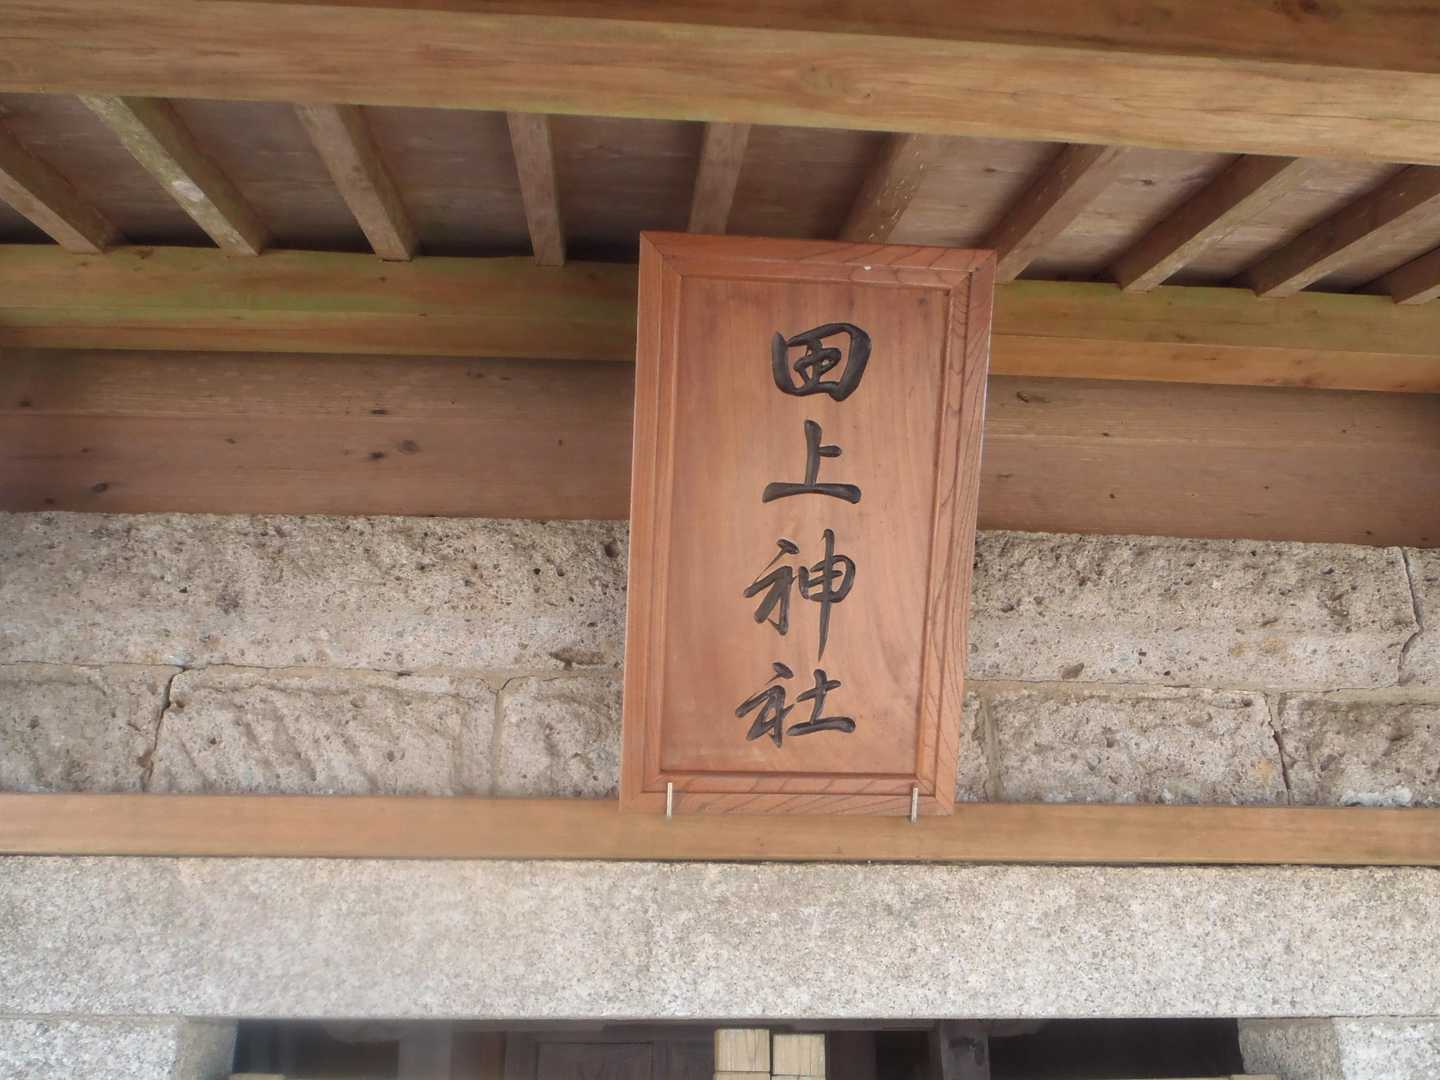 田上神社